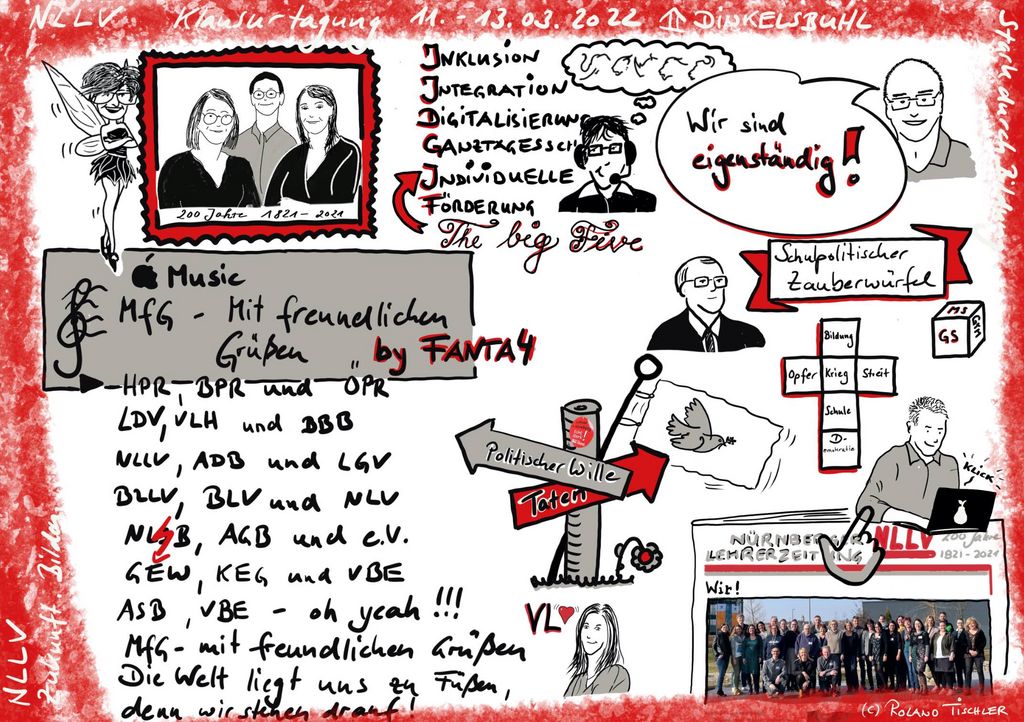 NLLV Klausurtagung 11. - 13.03.2022 ⇑ DINKELSBÜHL
Stark durch
200 Jahre 1821 - 2021
INKLUSION
INTEGRATION
DIGITALISIERUNG
GANZTAGESSCH
INDIVIDUELLE
FÖRDERUNG
The big Five
Wir sind
eigenständig!
Music
MfG - Mit freundlichen
Grüßen
by FANTA4
HPR, BPR und ÖPR
LDV, VLH und BBB
NLLV, ADB und LGV
BLLV, BLV und NLV
NLSB, AGB und e.V.
GEW, KEG und VBE
ASB, VBE - oh yeah!!!
MfG - mit freundlichen Grüßen
Die Welt liegt uns zu Füßen,
denn wir stehen drauf!
Schulpolitischer
Zauberwürfel
MS
GS
Bildung
Opfer Krieg Streit
Schule
D-
emokratie
Politischer Wille
Taten
KLICK
NÜRNBERGER
LEHRERZEITUNG
NLLV
200 Jahre
1821 - 2021
Wir!
VL
NLLV
Zukunft Bilden
(c) ROLAND TISCHLER